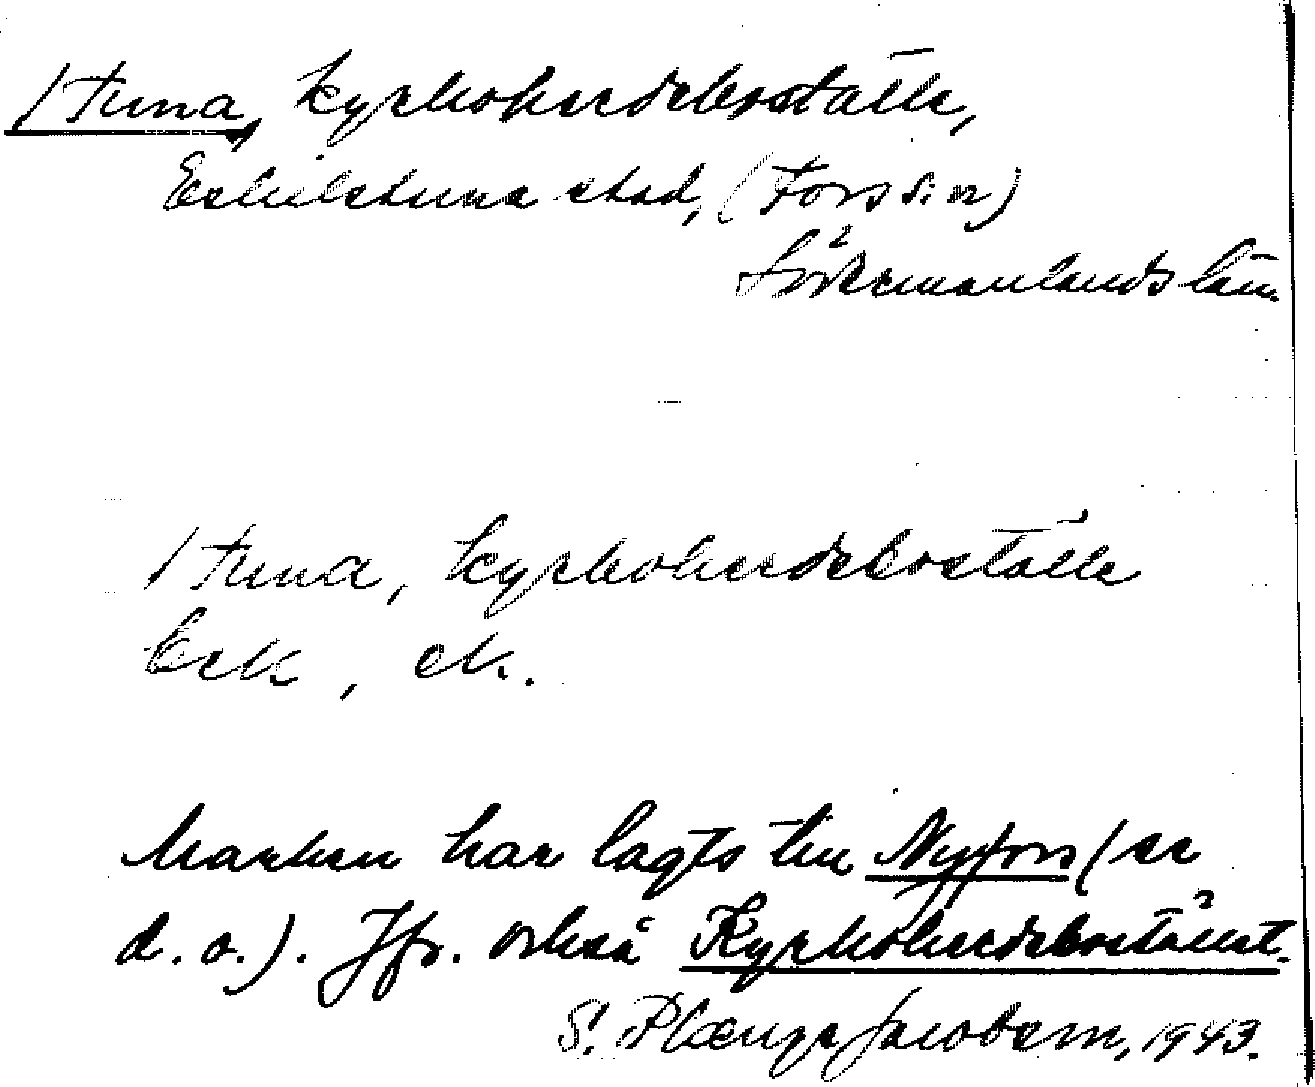 /Tuna, kyrkoherdeboställe,
Eskilstuna stad, (Fors s:n)
Södermanlands län.
/Tuna, kyrkoherdeboställe
Esk, ek.
Marken har lagts till Nyfors (se
d. o.). Jfr. också Kyrkoherdebostället.
S. Plænge Jacobson, 1943.